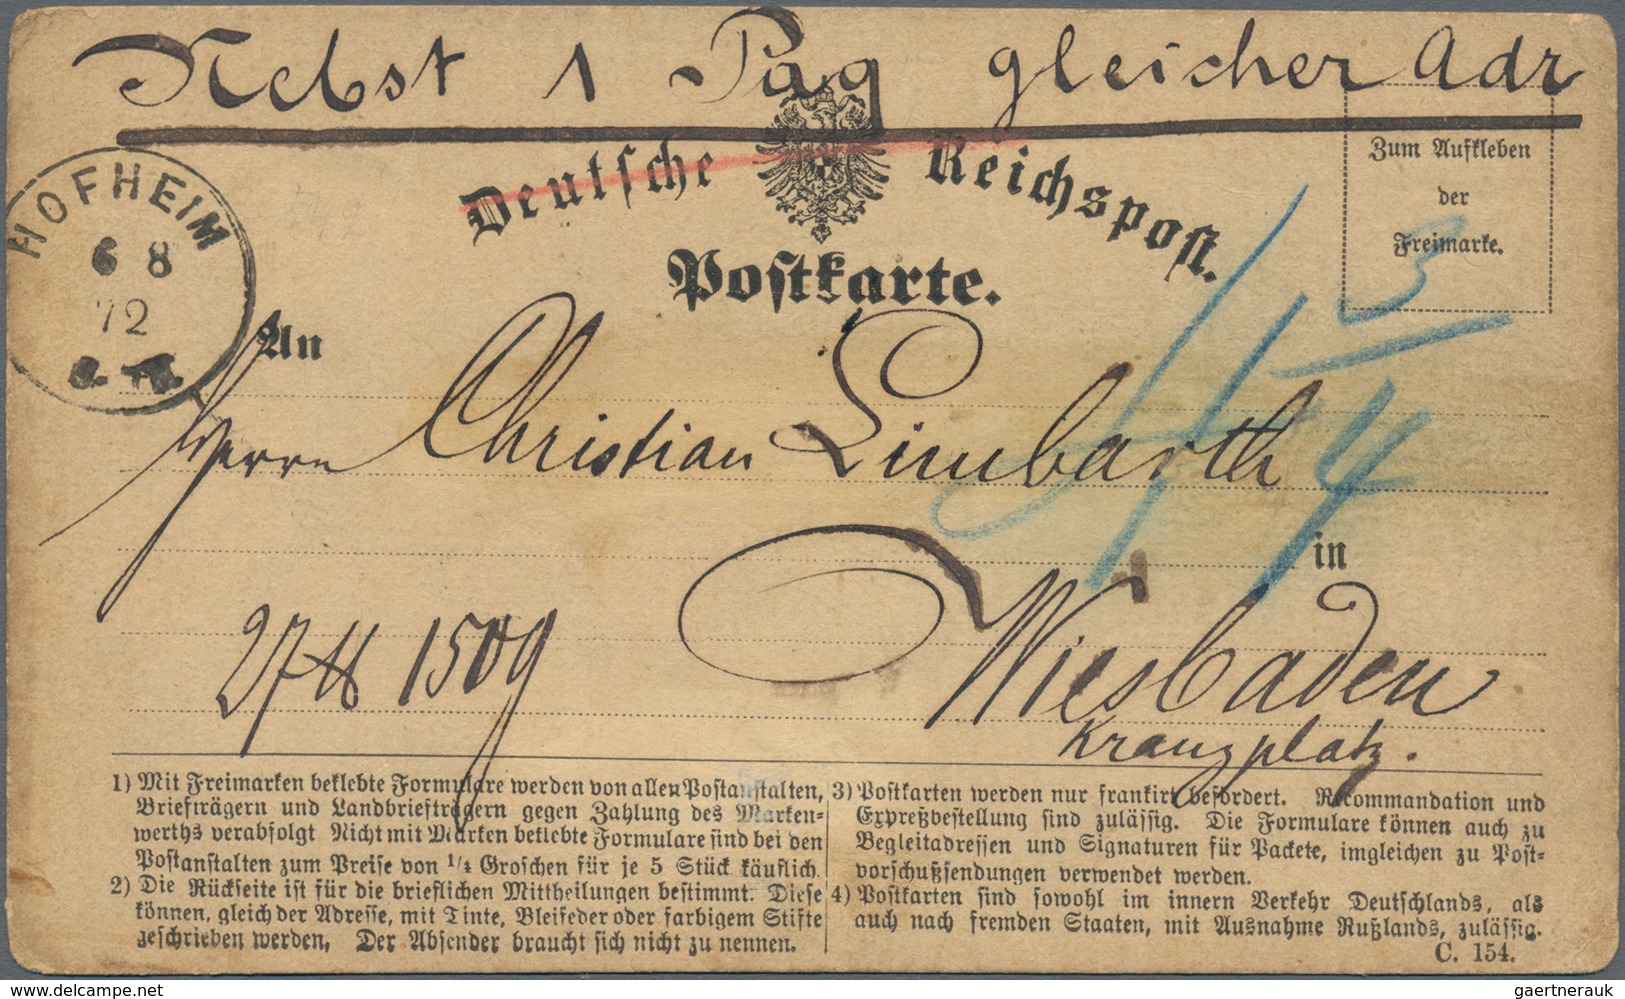 Nebst 1 Pag gleicher Adr
Deutsche Reichspost.
Postkarte.
Zum Aufkleben
der
Freimarke.
HOFHEIM
6 8
72
An
Herrn Christian Limbarth
in
Wiesbaden
Kranzplatz.
3
4
1) Mit Freimarken beklebte Formulare werden von allen Postanstalten,
Briefträgern und Landbriefträgern gegen Zahlung des Marken-
werths verabfolgt Nicht mit Marken beklebte Formulare sind bei den
Postanstalten zum Preise von 1/4 Groschen für je 5 Stück käuflich.
2) Die Rückseite ist für die brieflichen Mittheilungen bestimmt. Diese
können, gleich der Adresse, mit Tinte, Bleifeder oder farbigem Stifte
geschrieben werden, Der Absender braucht sich nicht zu nennen.
3) Postkarten werden nur frankirt befördert. Recommandation und
Expreßbestellung sind zulässig. Die Formulare können auch zu
Begleitadressen und Signaturen für Packete, imgleichen zu Post-
vorschußsendungen verwendet werden.
4) Postkarten sind sowohl im innern Verkehr Deutschlands, als
auch nach fremden Staaten, mit Ausnahme Rußlands, zulässig.
C. 154.
delcampe.net
gaertnerauk